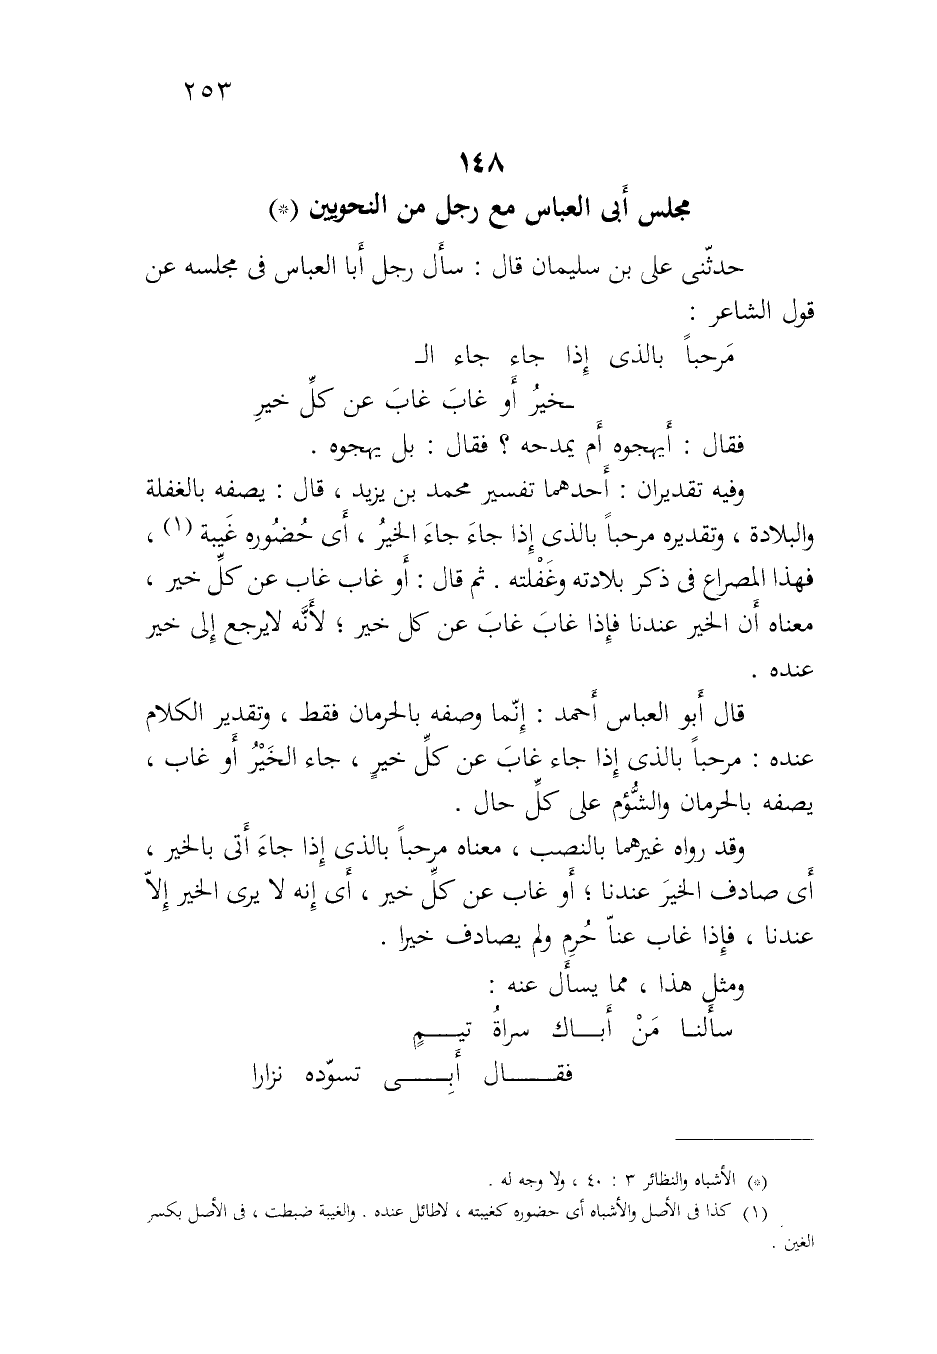 ٢٥٣
١٤٨
مجلس أبى العباس مع رجل من النحويين (*)
حدثّنى على بن سليمان قال : سأَل رجل أَبا العباس فى مجلسه عن
قول الشاعر :
مَرحباً بالذى إِذا جاء جاء الـ
ـخيرُ أَو غابَ غابَ عن كلِّ خيرِ
فقال : أَيهجوه أَم يمدحه ؟ فقال : بل يهجوه .
وفيه تقديران : أَحدهما تفسير محمد بن يزيد ، قال : يصفه بالغفلة
والبلادة ، وتقديره مرحباً بالذى إِذا جاءَ جاءَ الخيرُ ، أَى حُضُوره غَيبة (١) ،
فهذا المصراع فى ذكر بلادته وغَفْلته . ثم قال : أَو غاب غاب عن كلِّ خير ،
معناه أَن الخير عندنا فإِذا غابَ غابَ عن كل خير ؛ لأَنَّه لايرجع إِلى خير
عنده .
قال أَبو العباس أَحمد : إِنّما وصفه بالحرمان فقط ، وتقدير الكلام
عنده : مرحباً بالذى إِذا جاء غابَ عن كلِّ خيرٍ ، جاء الخَيْرُ أَو غاب ،
يصفه بالحرمان والشُّؤم على كلِّ حال .
وقد رواه غيرهما بالنصب ، معناه مرحباً بالذى إِذا جاءَ أَتى بالخير ،
أَى صادف الخيرَ عندنا ؛ أَو غاب عن كلِّ خير ، أَى إِنه لا يرى الخير إِلاّ
عندنا ، فإِذا غاب عناّ حُرِم ولم يصادف خيرا .
ومثل هذا ، مما يسأَل عنه :
سأَلنـا مَنْ أُبـــاك سراةُ تيـــمٍ
فقـــــال أَبِـــــى تسوّده نزارا
(*) الأشباه والنظائر ٣ : ٤٠ ، ولا وجه له .
(١) كذا فى الأصل والأشباه أى حضوره كغيبته ، لاطائل عنده . والغيبة ضبطت ، فى الأصل بكسر
الغين .